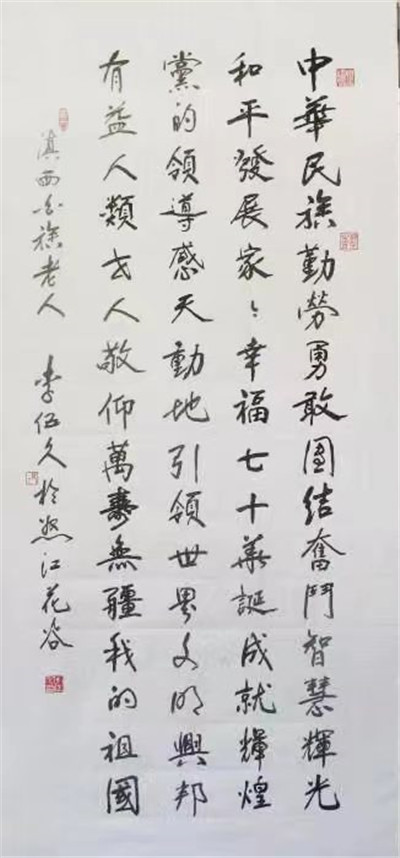 中華民族勤勞勇敢團结奮鬥智慧輝光
和平發展家〻幸福七十華誕成就輝煌
黨的領導感天動地引領世界文明興邦
有益人類世人敬仰萬壽無疆我的祖國
滇西白族老人 李伍久於怒江花谷